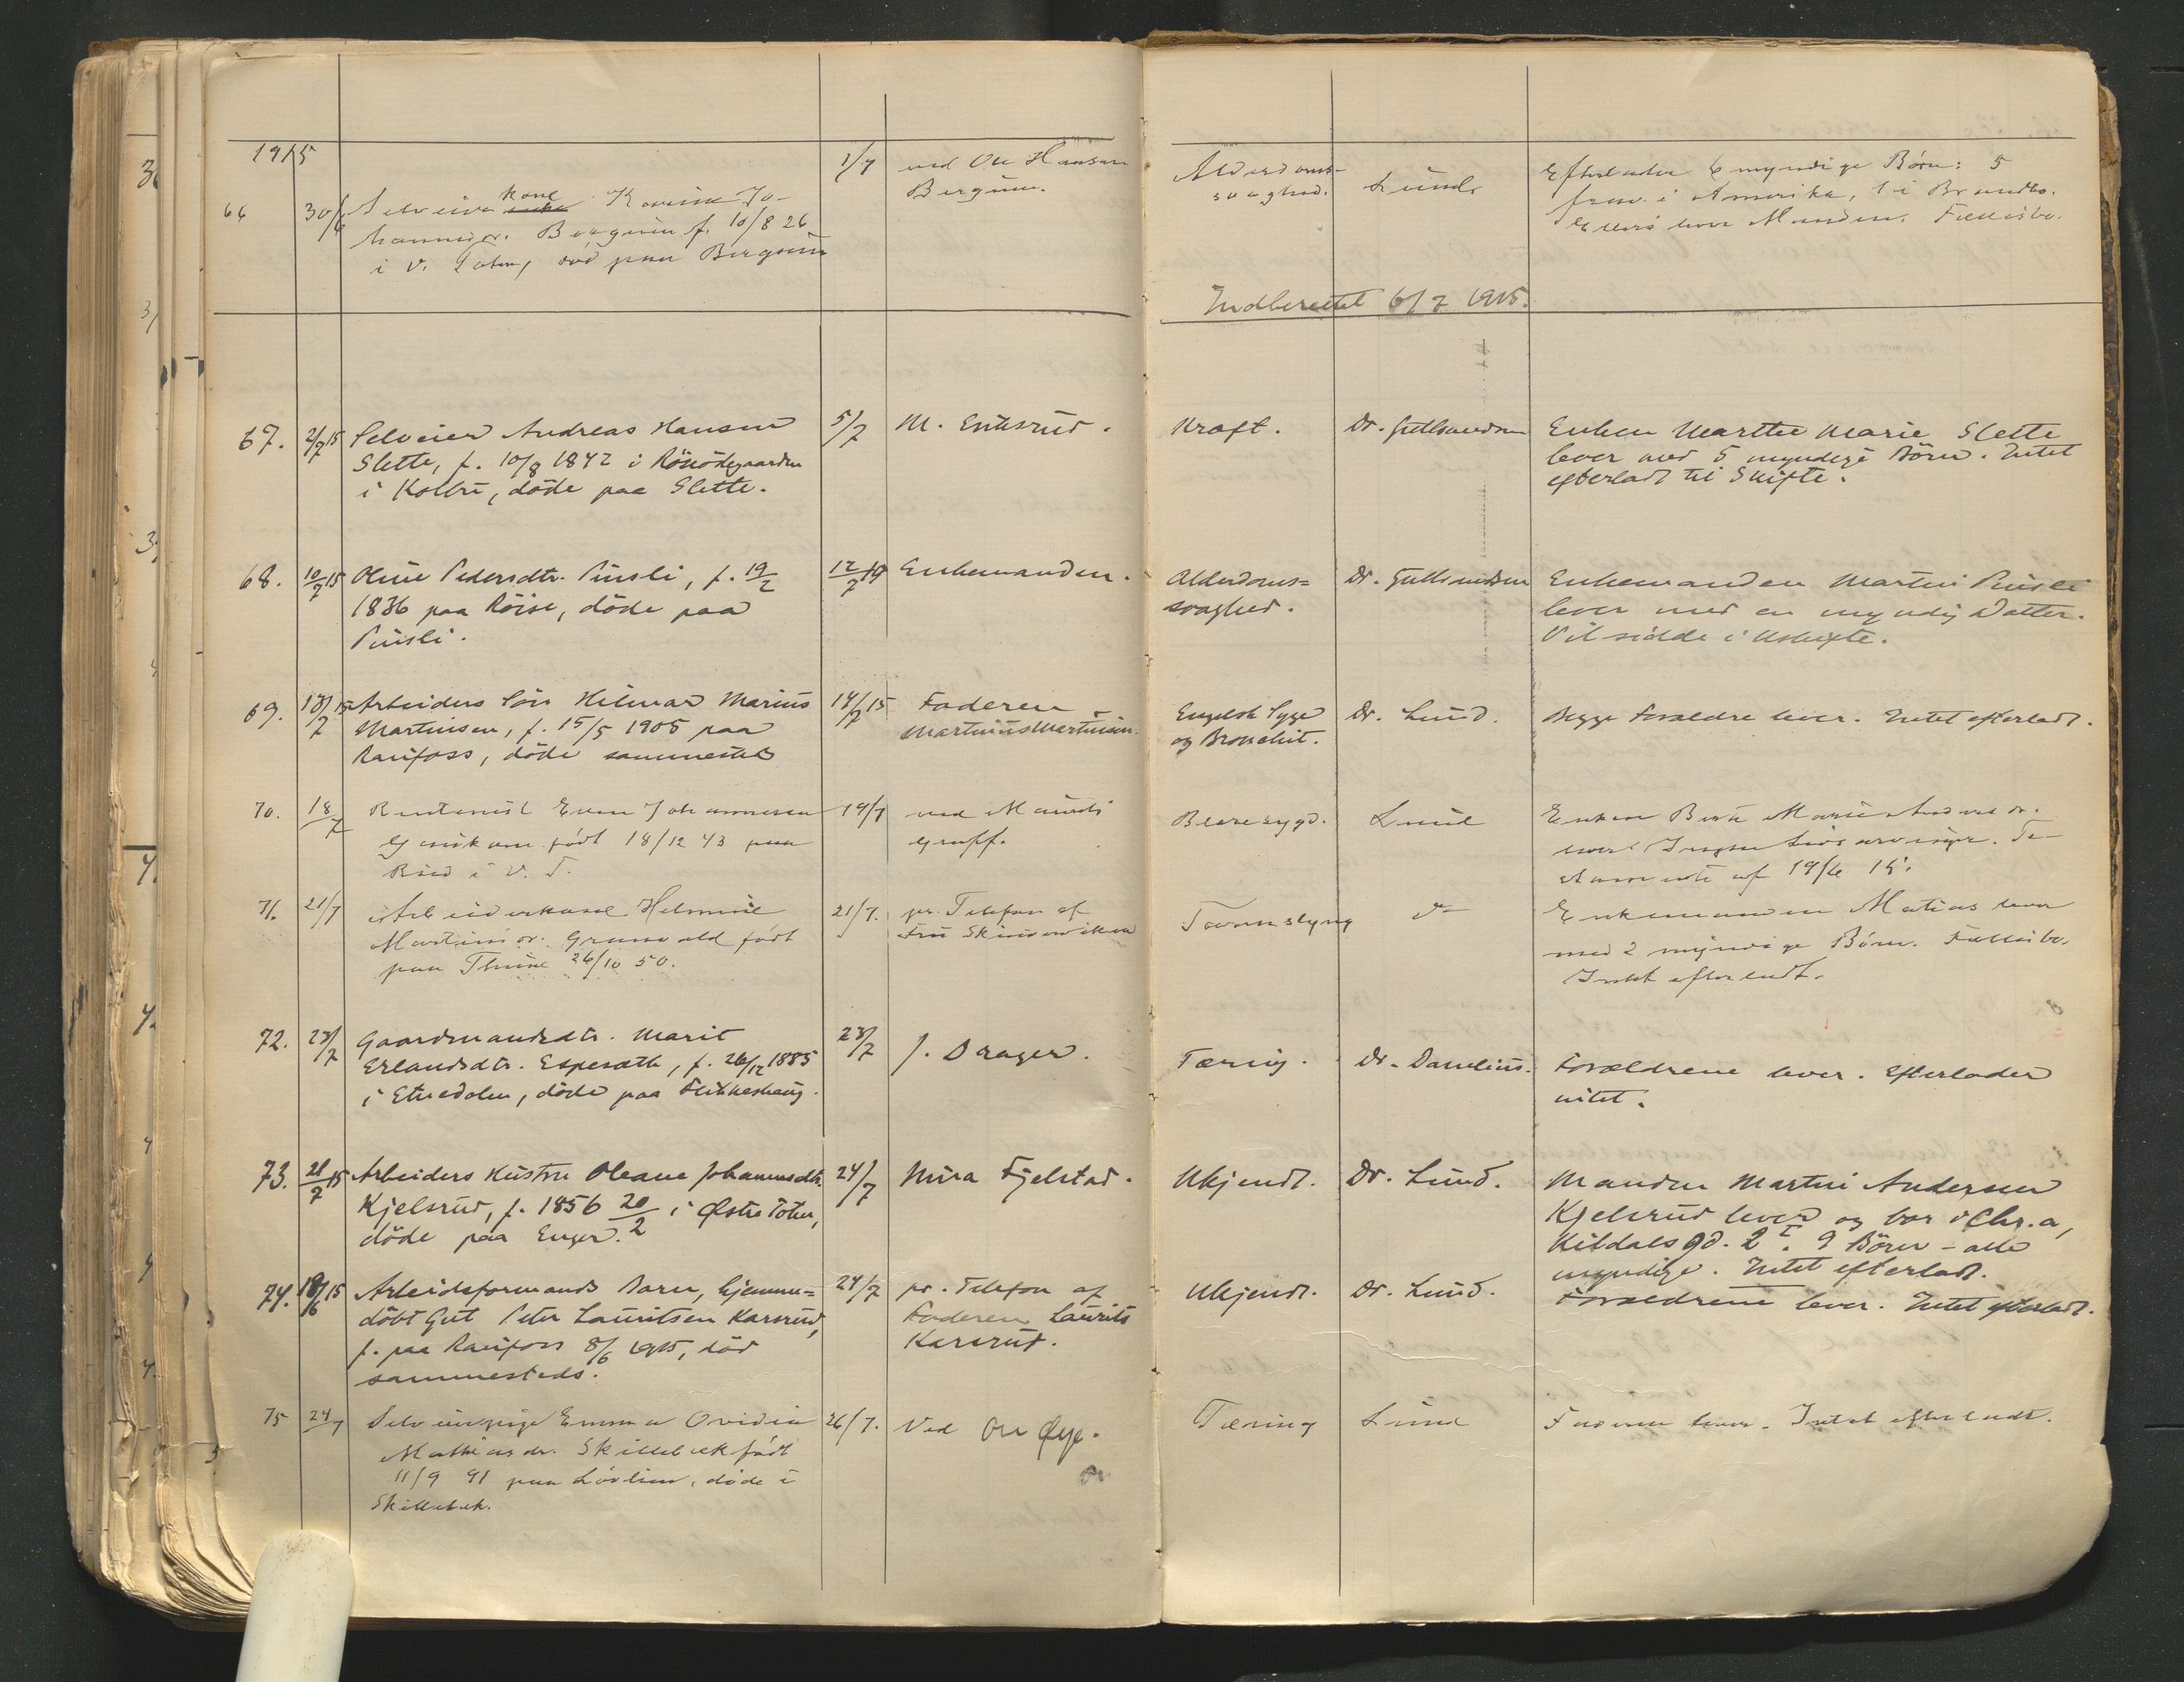 1915
66 30/6 Selveier kone Karine Jo- 1/7 ved Ole Hansen Alderdoms- Lund Efterlader 6 myndige Børn: 5
hannesdr. Bergsün f. 10/8 26 Bergsün. svaghed. frav. i Amerika, 1 i Brandbo.
i V. Toten, død paa Bergsün Ellers lever Manden. Fællesbo.
Indberettet 6/7 1915.
67. 2/7 15 Selveier Andreas Hansen 5/7 M. Eriksrud. Kræft. Dr. Gulbrandsen Enken Marthe Marie Slette
Slette, f. 10/8 1842 i lever med 5 myndige Børn. Intet
i Kolbu, døde paa Slette. efterladt til Skifte.
68. 10/7 15 Oline Pedersdtr. Pinsli, f. 19/2 12/7 Enkemanden. Alderdoms= Dr. Gulbrandsen Enkemanden Martin Pinsli
1836 paa Röise, døde paa svaghed. lever med en myndig Datter.
Pinsli. Vil sidde i Uskifte.
69. 13/7 15 Arbeiders Sön Hilmar Marius 14/7 15 Faderen Engelsk Syge Dr. Lund. Begge Forældre lever. Intet efterladt.
Martinsen, f. 15/5 1905 paa Martinius Martinsen. og Bronchit.
Raufoss, døde sammesteds
70. 18/7 Rentenist Even Johannesen 19/7 ved Maurits Blæresygd. Lund Enken Marie
født 18/12 43 paa Gruff. lever. Ingen Livsarvinger. Te-
i V. T. stamente af 19/6 15.
71. 21/7 Arbeiderkone Helmine 21/7. pr. Telefon af Tarmslyng do Enkemanden Matias lever
Martinsdr. Grunvald født Fru med 2 myndige Børn. Fællesbo.
paa Thune 26/10 50. Intet efterladt.
72. 23/7 Gaardmandsdtr. Marit 23/7 J. Drager. Tæring. Dr. Danelius. Forældrene lever. Efterlader
Erlandsdtr. Espesæth, f. 26/12 1885 intet.
i Etnedalen, døde paa
73. 21/7 15 Arbeiders Hustru Oleane Johannesdtr. 24/7 Mina Fjelstad. Ukjendt. Dr. Lund. Manden Martin Andersen
Kjelsrud, f. 1856 20/2 i Østre Toten, Kjelsrud lever og bor i Chr.a,
døde paa Enger. Kildalsgd. 2 I. 9 Børn - alle
myndige. Intet efterladt.
74. 18/6 15 Arbeidsformands Barn, hjemme= 24/7 pr. Telefon af Ukjendt. Dr. Lund. Forældrene lever. Intet efterladt.
döbt Gut Peter Lauritsen Karsrud, Faderen Laurits
f. paa Raufoss 8/6 1915, död Karsrud.
sammesteds.
75 24/7 Selveierpige Emma Ovidia 26/7. Ved Ole Øye. Tæring Lund Faderen lever. Intet efterladt.
Mathiasdr. Skillebek født
11/9 91 paa Lövlien, døde i
Skillebek.